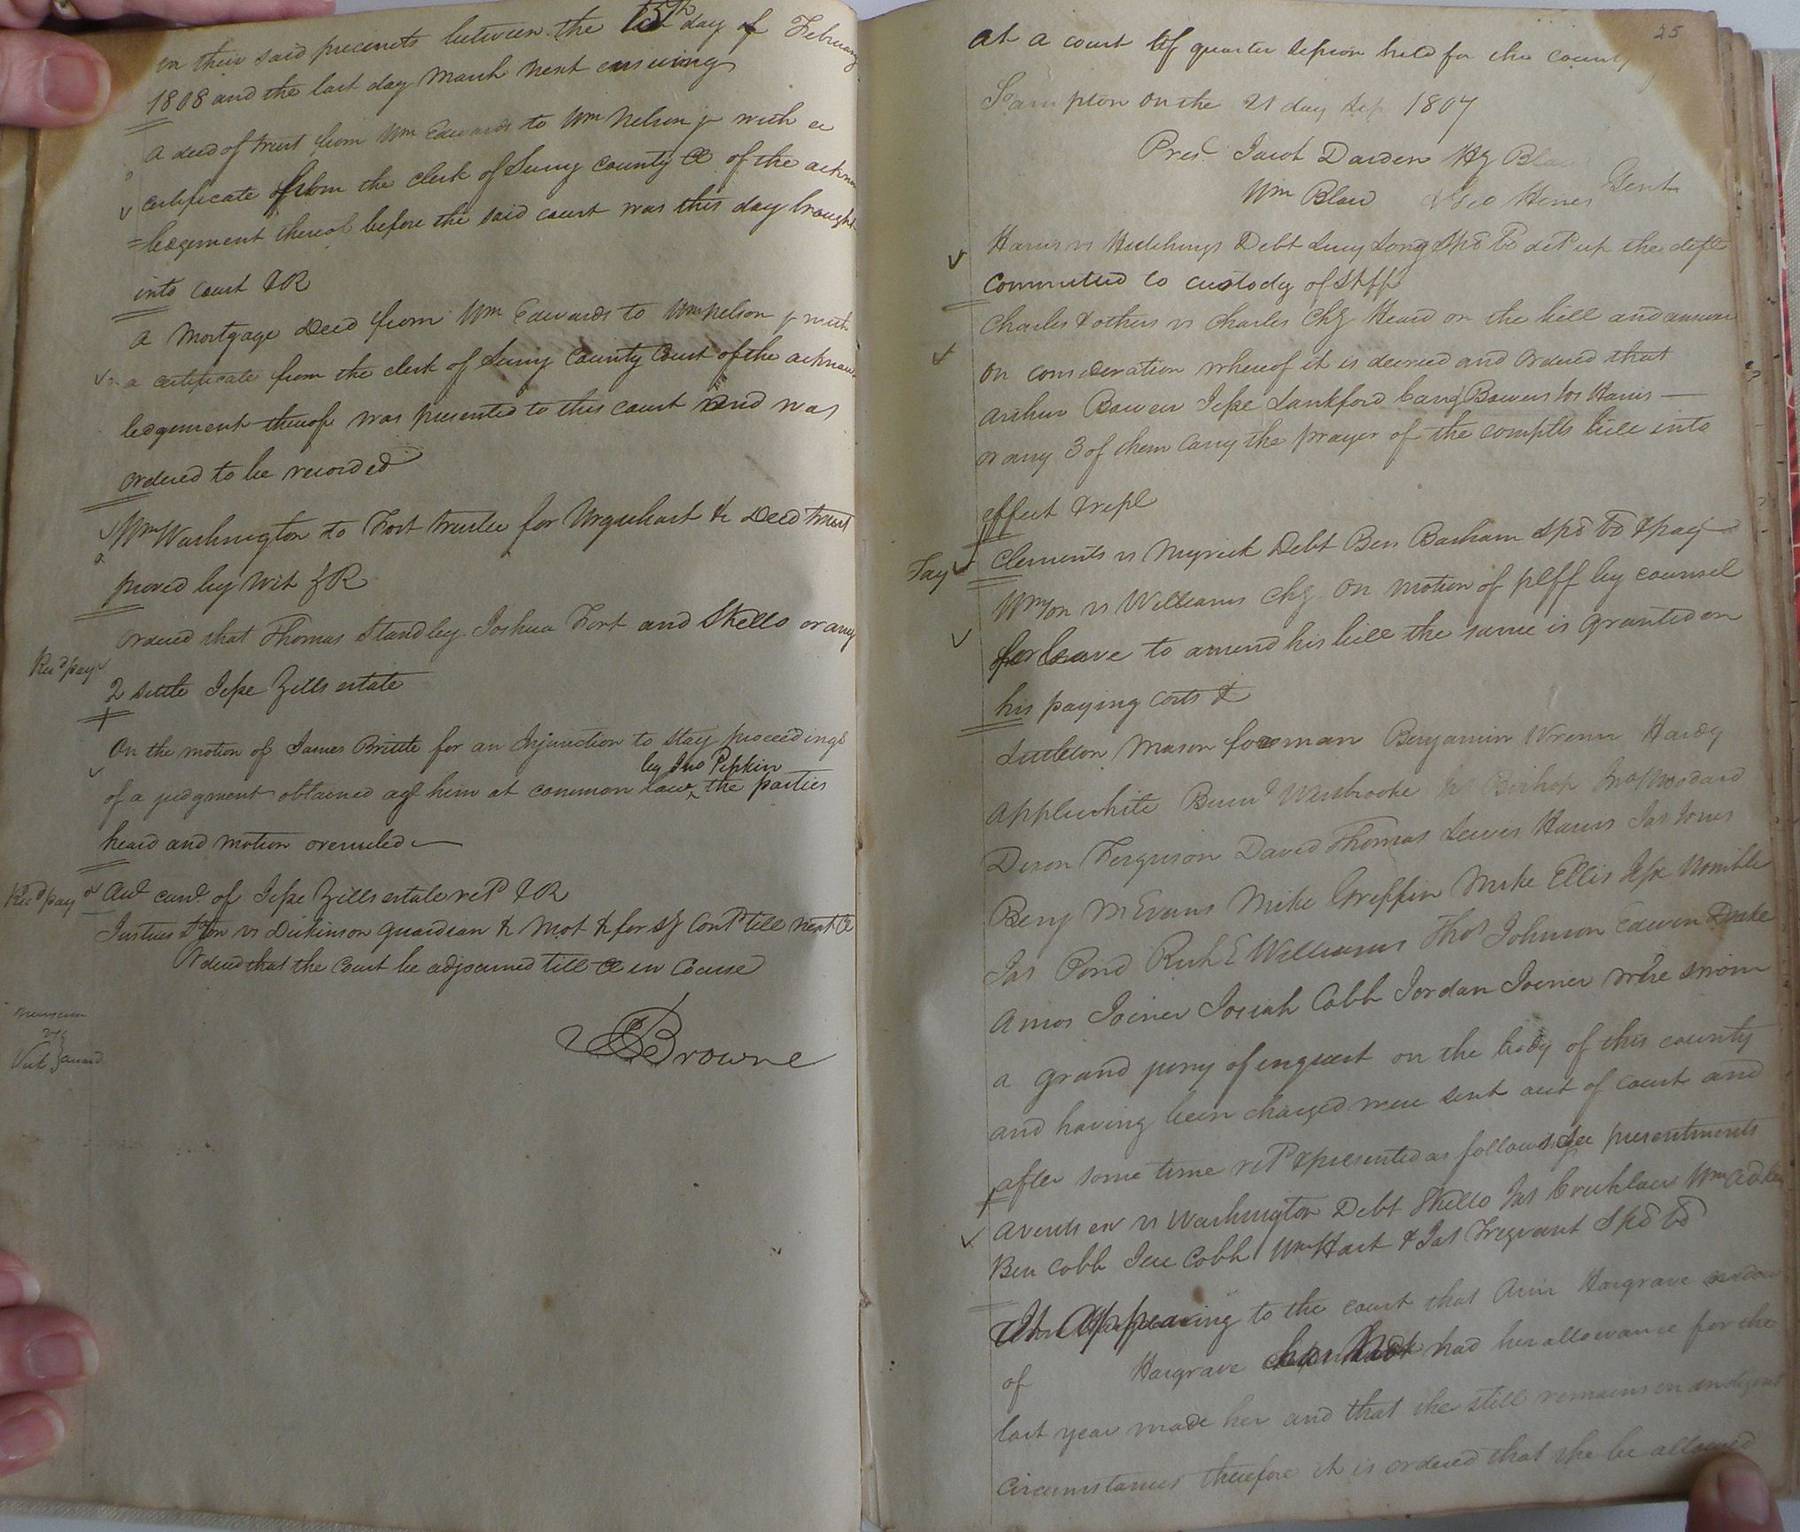 in their said precincts between the 15th day of February
1808 and the last day March next ensuing
A deed of trust from Wm Edwards to Wm Nelson jr with a
certificate from the clerk of Surry county Ct of the acknow
ledgement thereof before the said court was this day brought
into court & R
A Mortgage Deed from Wm Edwards to Wm Nelson jr with
a certificate from the clerk of Surry County Court of the acknow
ledgement thereof was presented to this court and was
ordered to be recorded
Wm Washington to Fort trustee for Urquhart &c Deed trust
proved by Wit & R
Ordered that Thomas Standley Joshua Fort and Skello or any
Recd pay
2 settle Jesse Zills estate
On the motion of James Brittle for an Injunction to stay proceedings
by Jno Pipkin
of a judgment obtained agt him at common law the parties
heard and motion overruled
Recd pay Acct curt of Jesse Zills estate retd & R
Justices &c on vs Dickinson guardian &c Mot &c for sy Contd till next Ct
Ordered that the Court be adjourned till Ct in Course
Browne
award
25
At a court of quarter session held for the county
Sampton on the 21 day Sep 1807
Pres Jacob Darden Hy Blow
Wm Blow & Geo Hines Gent
Harris vs Hutchings Debt Lucy Long Spd bd detd up the deft
committed to custody of Shff
Charles & others vs Charles Chy Heard on the bill and answer
on consideration whereof it is decreed and ordered that
Arthur Bowen Jesse Lankford Bowers Harris
or any 3 of them carry the prayer of the complts bill into
effect & repl
Fay Clements vs Myrick Debt Ben Barham spd bd & pay
Wmson vs Williams Chy On motion of plff by counsel
for leave to amend his bill the same is granted on
his paying costs &
Littleton Mason foreman Benjamin Wrenn Hardy
Applewhite Burwl Westbrooke Bishop Jno Woodard
Dixon Ferguson David Thomas Lewis Harris Jas Jones
Benj W Evans Mike Griffin Mike Ellis Jesse Womble
Jas Pond Richd E Williams Thos Johnson Edwin Drake
Amos Joiner Josiah Cobb Jordan Joiner were sworn
a grand jury of inquest on the body of this county
and having been charged were sent out of court and
after some time retd & presented as follows see presentments
vs Washington Debt Skello Jas Crichlow Wm
Ben Cobb Jere Cobb Wm Hart & Jas Trezvant Spd bd
It appearing to the court that Ann Hargrave widow
of Hargrave has not had her allowance for the
last year made her and that she still remains in indigent
circumstances therefore it is ordered that she be allowed